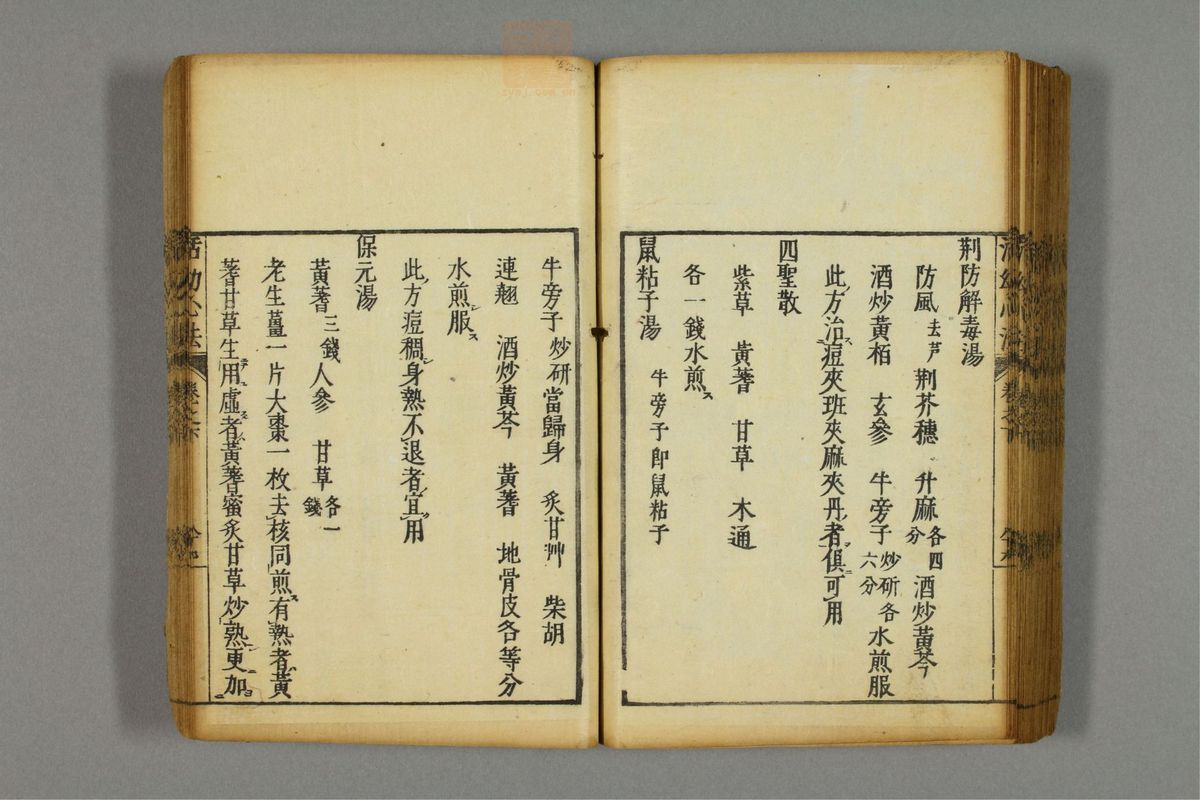 荆防解毒湯
防風去芦 荆芥穗 升麻各四分 酒炒黄芩
酒炒黄栢 玄參 牛旁子炒研各六分 水煎服
此方治痘夾班夾麻夾丹者俱可用
四聖散
紫草 黄蓍 甘草 木通
各一錢水煎ス
鼠粘子湯 牛旁子即鼠粘子
牛旁子炒研當歸身 炙甘艸 柴胡
連翹 酒炒黄芩 黄蓍 地骨皮各等分
水煎服ス
此方痘稠身熱不退者宜用
保元湯
黄蓍三錢人參 甘草各一錢
老生薑一片大棗一枚去核同煎有熱者黄
蓍甘草生用虛者黄蓍蜜炙甘草炒熟更加
活幼心法 卷之下